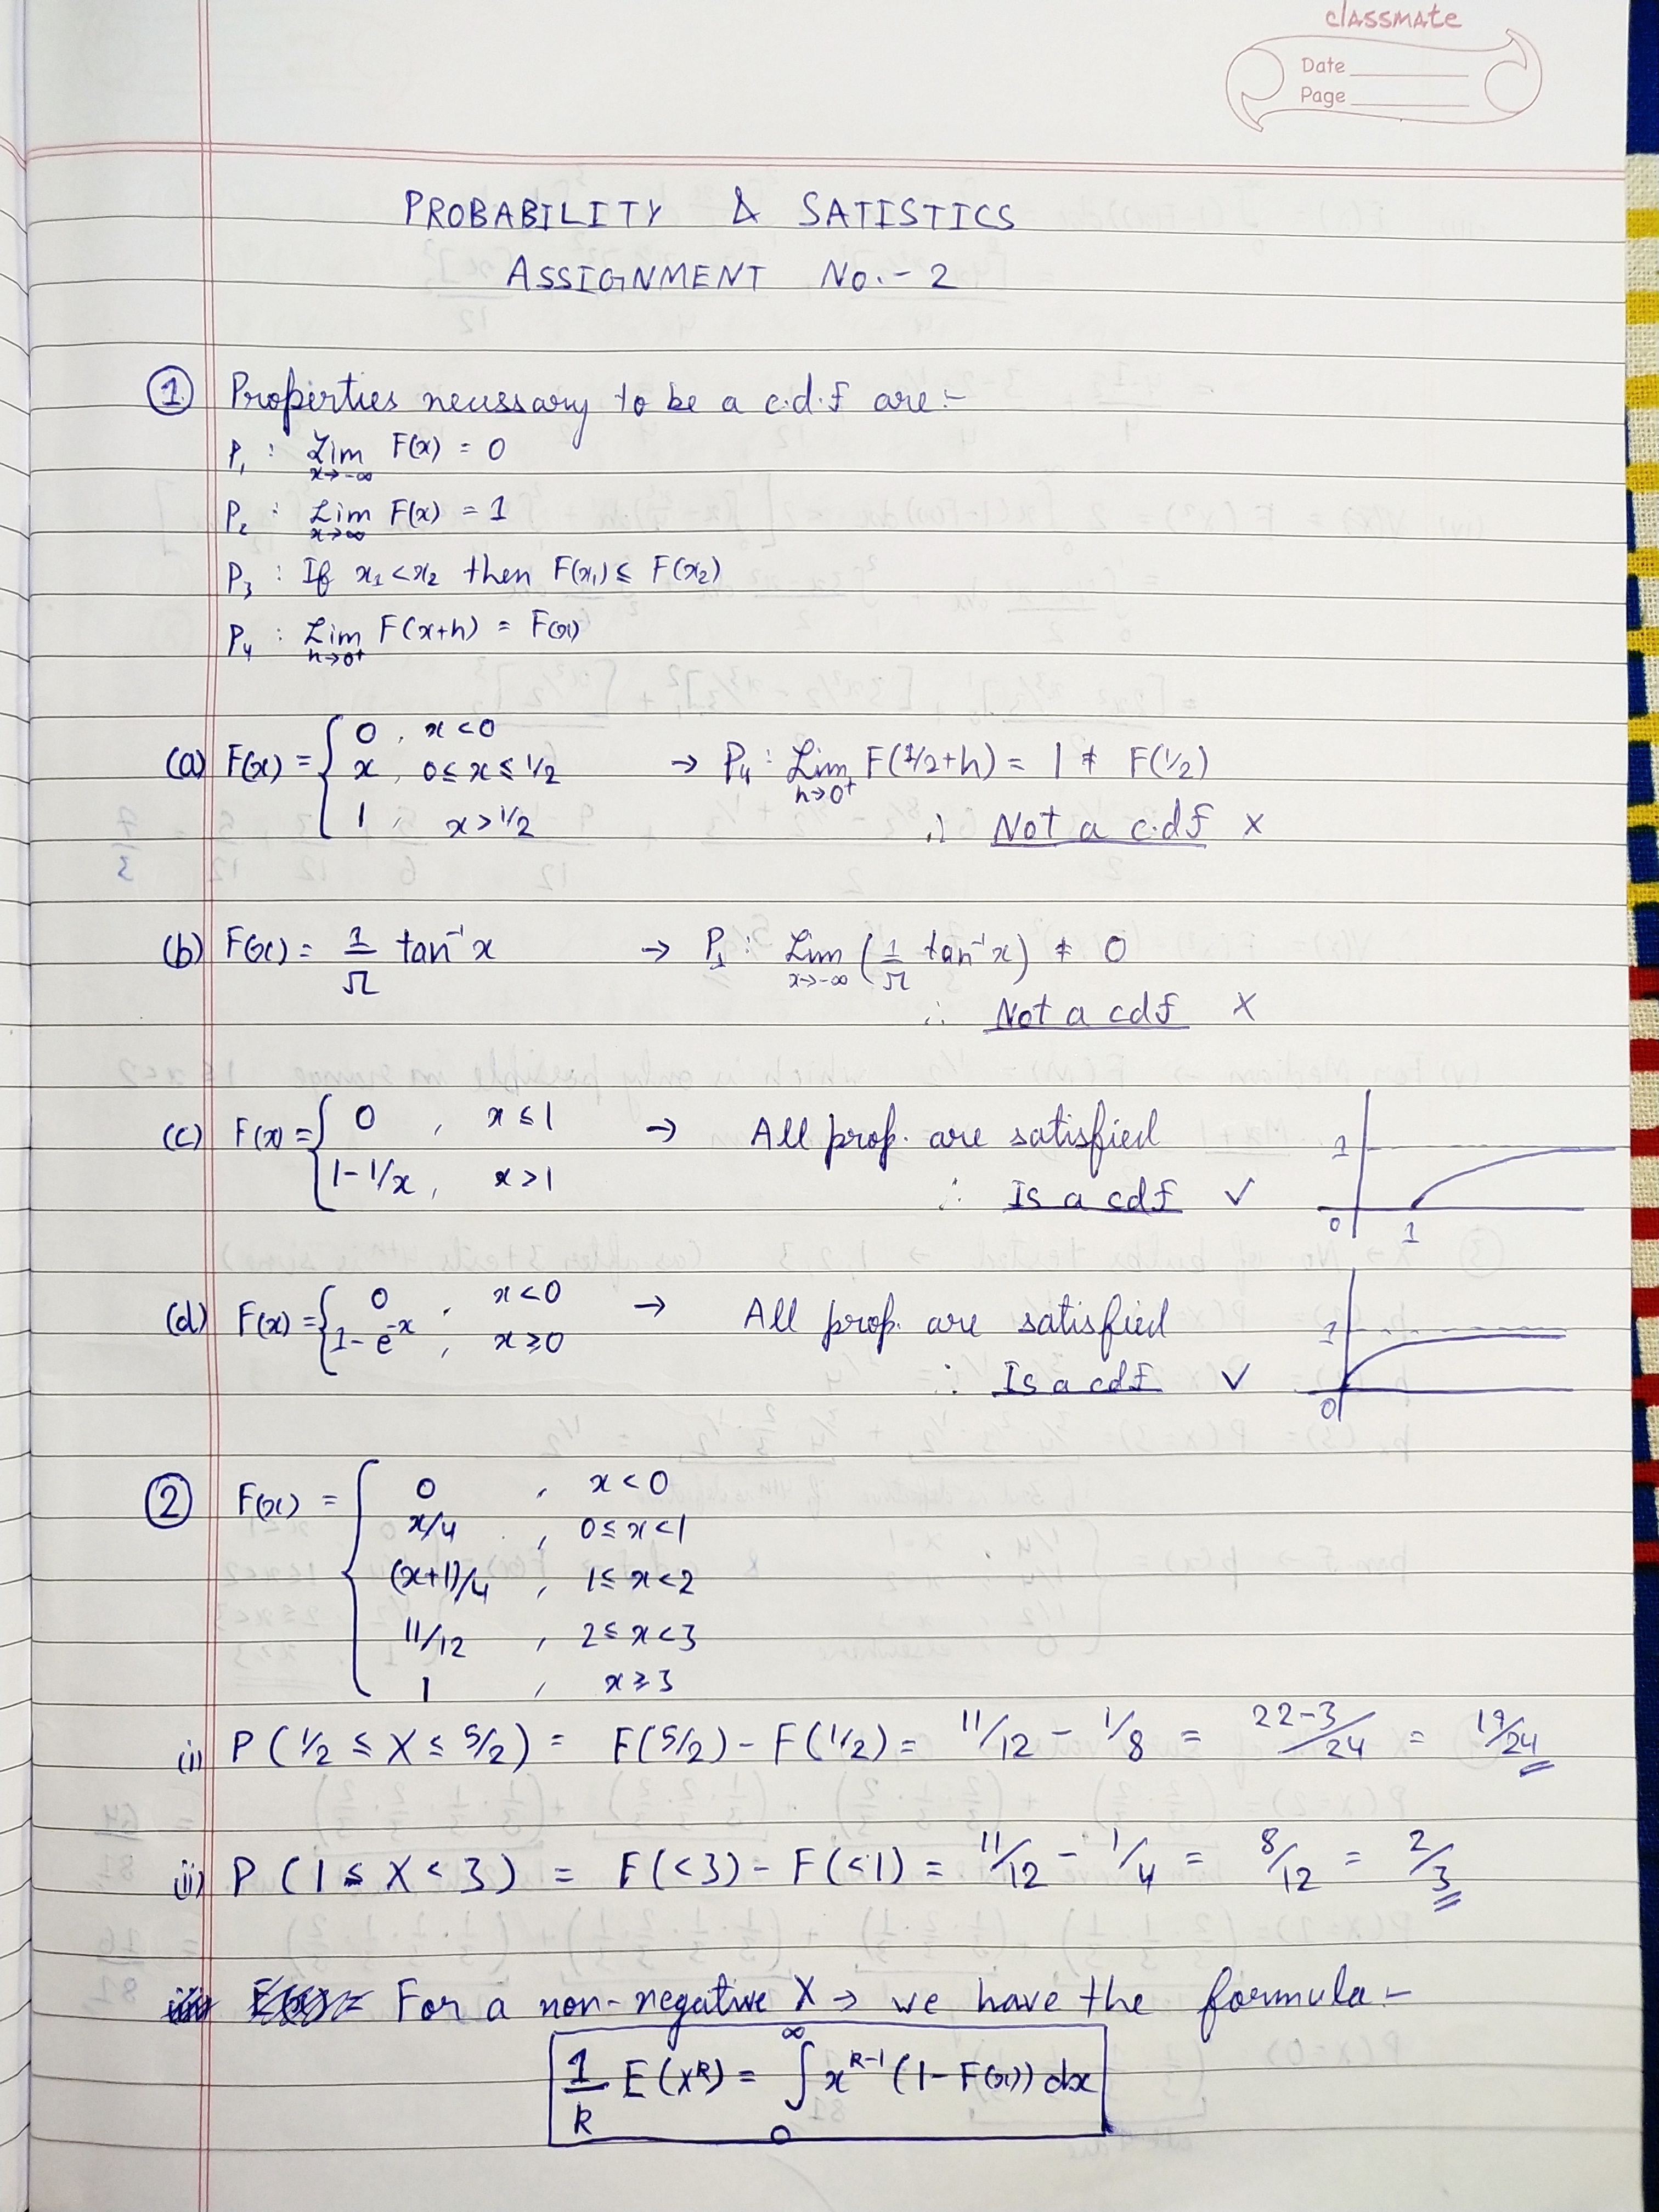 classmate
Date
Page
PROBABILITY & SATISTICS
ASSIGNMENT No.- 2
① Properties necessary to be a c.d.f are:-
P₁ : Lim x→-∞ F(x) = 0
P₂ : Lim x→∞ F(x) = 1
P₃ : If x₁<x₂ then F(x₁) ≤ F(x₂)
P₄ : Lim h→0⁺ F(x+h) = F(x)
(a) F(x) = { 0, x<0
x, 0≤x≤1/2 → P₄ : Lim h→0⁺ F(1/2+h) = 1 ≠ F(1/2)
1, x>1/2 ∴ Not a c.d.f ×
(b) F(x) = 1/π tan⁻¹x → P₁ : Lim x→-∞ (1/π tan⁻¹x) ≠ 0
∴ Not a cdf ×
(c) F(x) = { 0, x≤1 → All prop. are satisfied 1
1-1/x, x>1 ∴ Is a cdf ✓ 0 1
(d) F(x) = { 0, x<0 → All prop. are satisfied 1
1-e⁻ˣ, x≥0 ∴ Is a cdf ✓ 0
② F(x) = { 0, x<0
x/4, 0≤x<1
(x+1)/4, 1≤x<2
11/12, 2≤x<3
1, x≥3
(i) P(1/2 ≤ X ≤ 5/2) = F(5/2) - F(1/2) = 11/12 - 1/8 = 22-3/24 = 19/24
(ii) P(1 ≤ X < 3) = F(<3) - F(<1) = 11/12 - 1/4 = 8/12 = 2/3
For a non-negative X → we have the formula:-
1/k E(Xᵏ) = ∫₀^∞ xᵏ⁻¹ (1-F(x)) dx